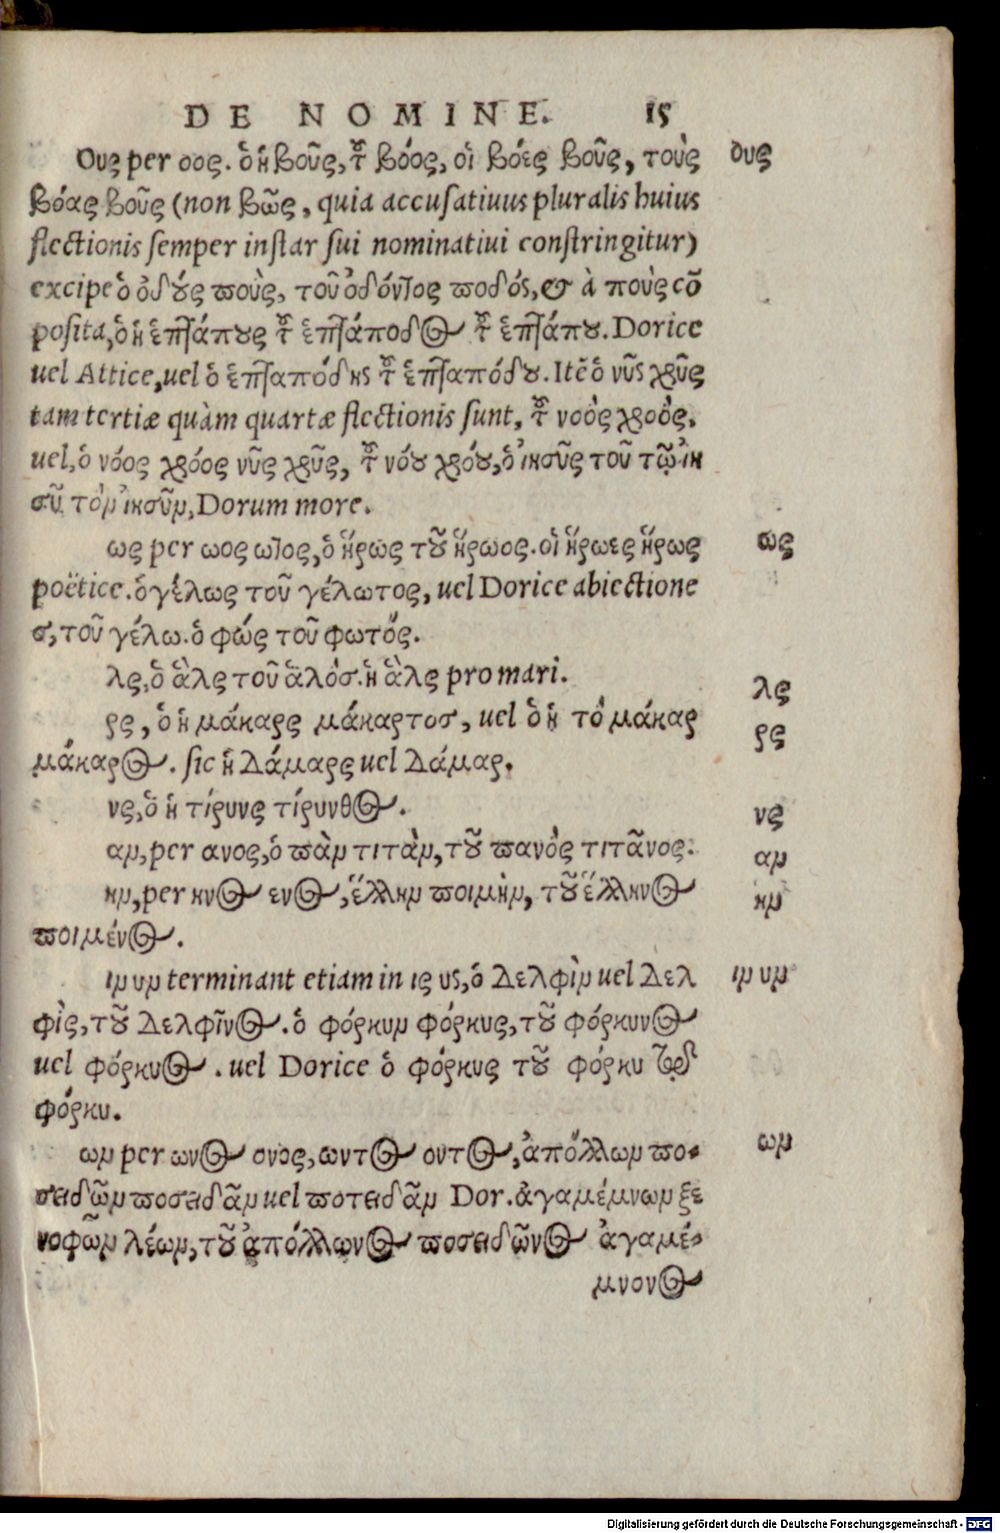 DE NOMINE. 15
Ους per οος. ὁ ἡ βοῦς, τ͂ βόος, οἱ βόες βοῦς, τοὺς ους
βόας βοῦς (non βῶς, quia accusativus pluralis huius
flectionis semper instar sui nominativi constringitur)
excipe ὁ ὀδούς ποὺς, τοῦ ὀδόντος ποδός, & à ποὺς cō
posita, ὁ ἡ ἑπτάπους τ͂ ἑπτάποδος τ͂ ἑπτάπου. Dorice
uel Attice, uel ὁ ἑπταπόδης τ͂ ἑπταπόδου. Itē ὁ νοῦς χοῦς
tam tertiæ quàm quartæ flectionis sunt, τ͂ νοὸς χοὸς.
uel, ὁ νόος χόος νοῦς χοῦς, τ͂ νόου χόου, ὁ ἰησοῦς τοῦ τῷ ἰη
σοῦ τὸν ἰησοῦν, Dorum more.
ως per ωος ωτος, ὁ ἥρως τοῦ ἥρωος. οἱ ἥρωες ἥρως ως
poëtice. ὁ γέλως τοῦ γέλωτος, uel Dorice abiectione
σ, τοῦ γέλω. ὁ φώς τοῦ φωτός.
λς, ὁ ἃλς τοῦ ἁλός. ἡ ἃλς pro mari. λς
ρς, ὁ ἡ μάκαρς μάκαρτος, uel ὁ ἡ τὸ μάκαρ ρς
μάκαρος. sic ἡ Δάμαρς uel Δάμαρ.
νς, ὁ ἡ τίρυνς τίρυνθος. νς
αν, per ανος, ὁ πὰν τιτὰν, τοῦ πανὸς τιτᾶνος. αν
ην, per ηνος ενος, ἕλλην ποιμὴν, τοῦ ἕλληνος ην
ποιμένος.
ιν υν terminant etiam in ις υς, ὁ Δελφὶν uel Δελ ιν υν
φὶς, τοῦ Δελφῖνος. ὁ φόρκυν φόρκυς, τοῦ φόρκυνος
uel φόρκυος. uel Dorice ὁ φόρκυς τοῦ φόρκυ
φόρκυ.
ων per ωνος ονος, ωντος οντος, ἀπόλλων πο- ων
σειδῶν ποσειδᾶν uel ποτειδᾶν Dor. ἀγαμέμνων ξε
νοφῶν λέων, τοῦ ἀπόλλωνος ποσειδῶνος ἀγαμέ-
μνονος
Digitalisierung gefördert durch die Deutsche Forschungsgemeinschaft - DFG